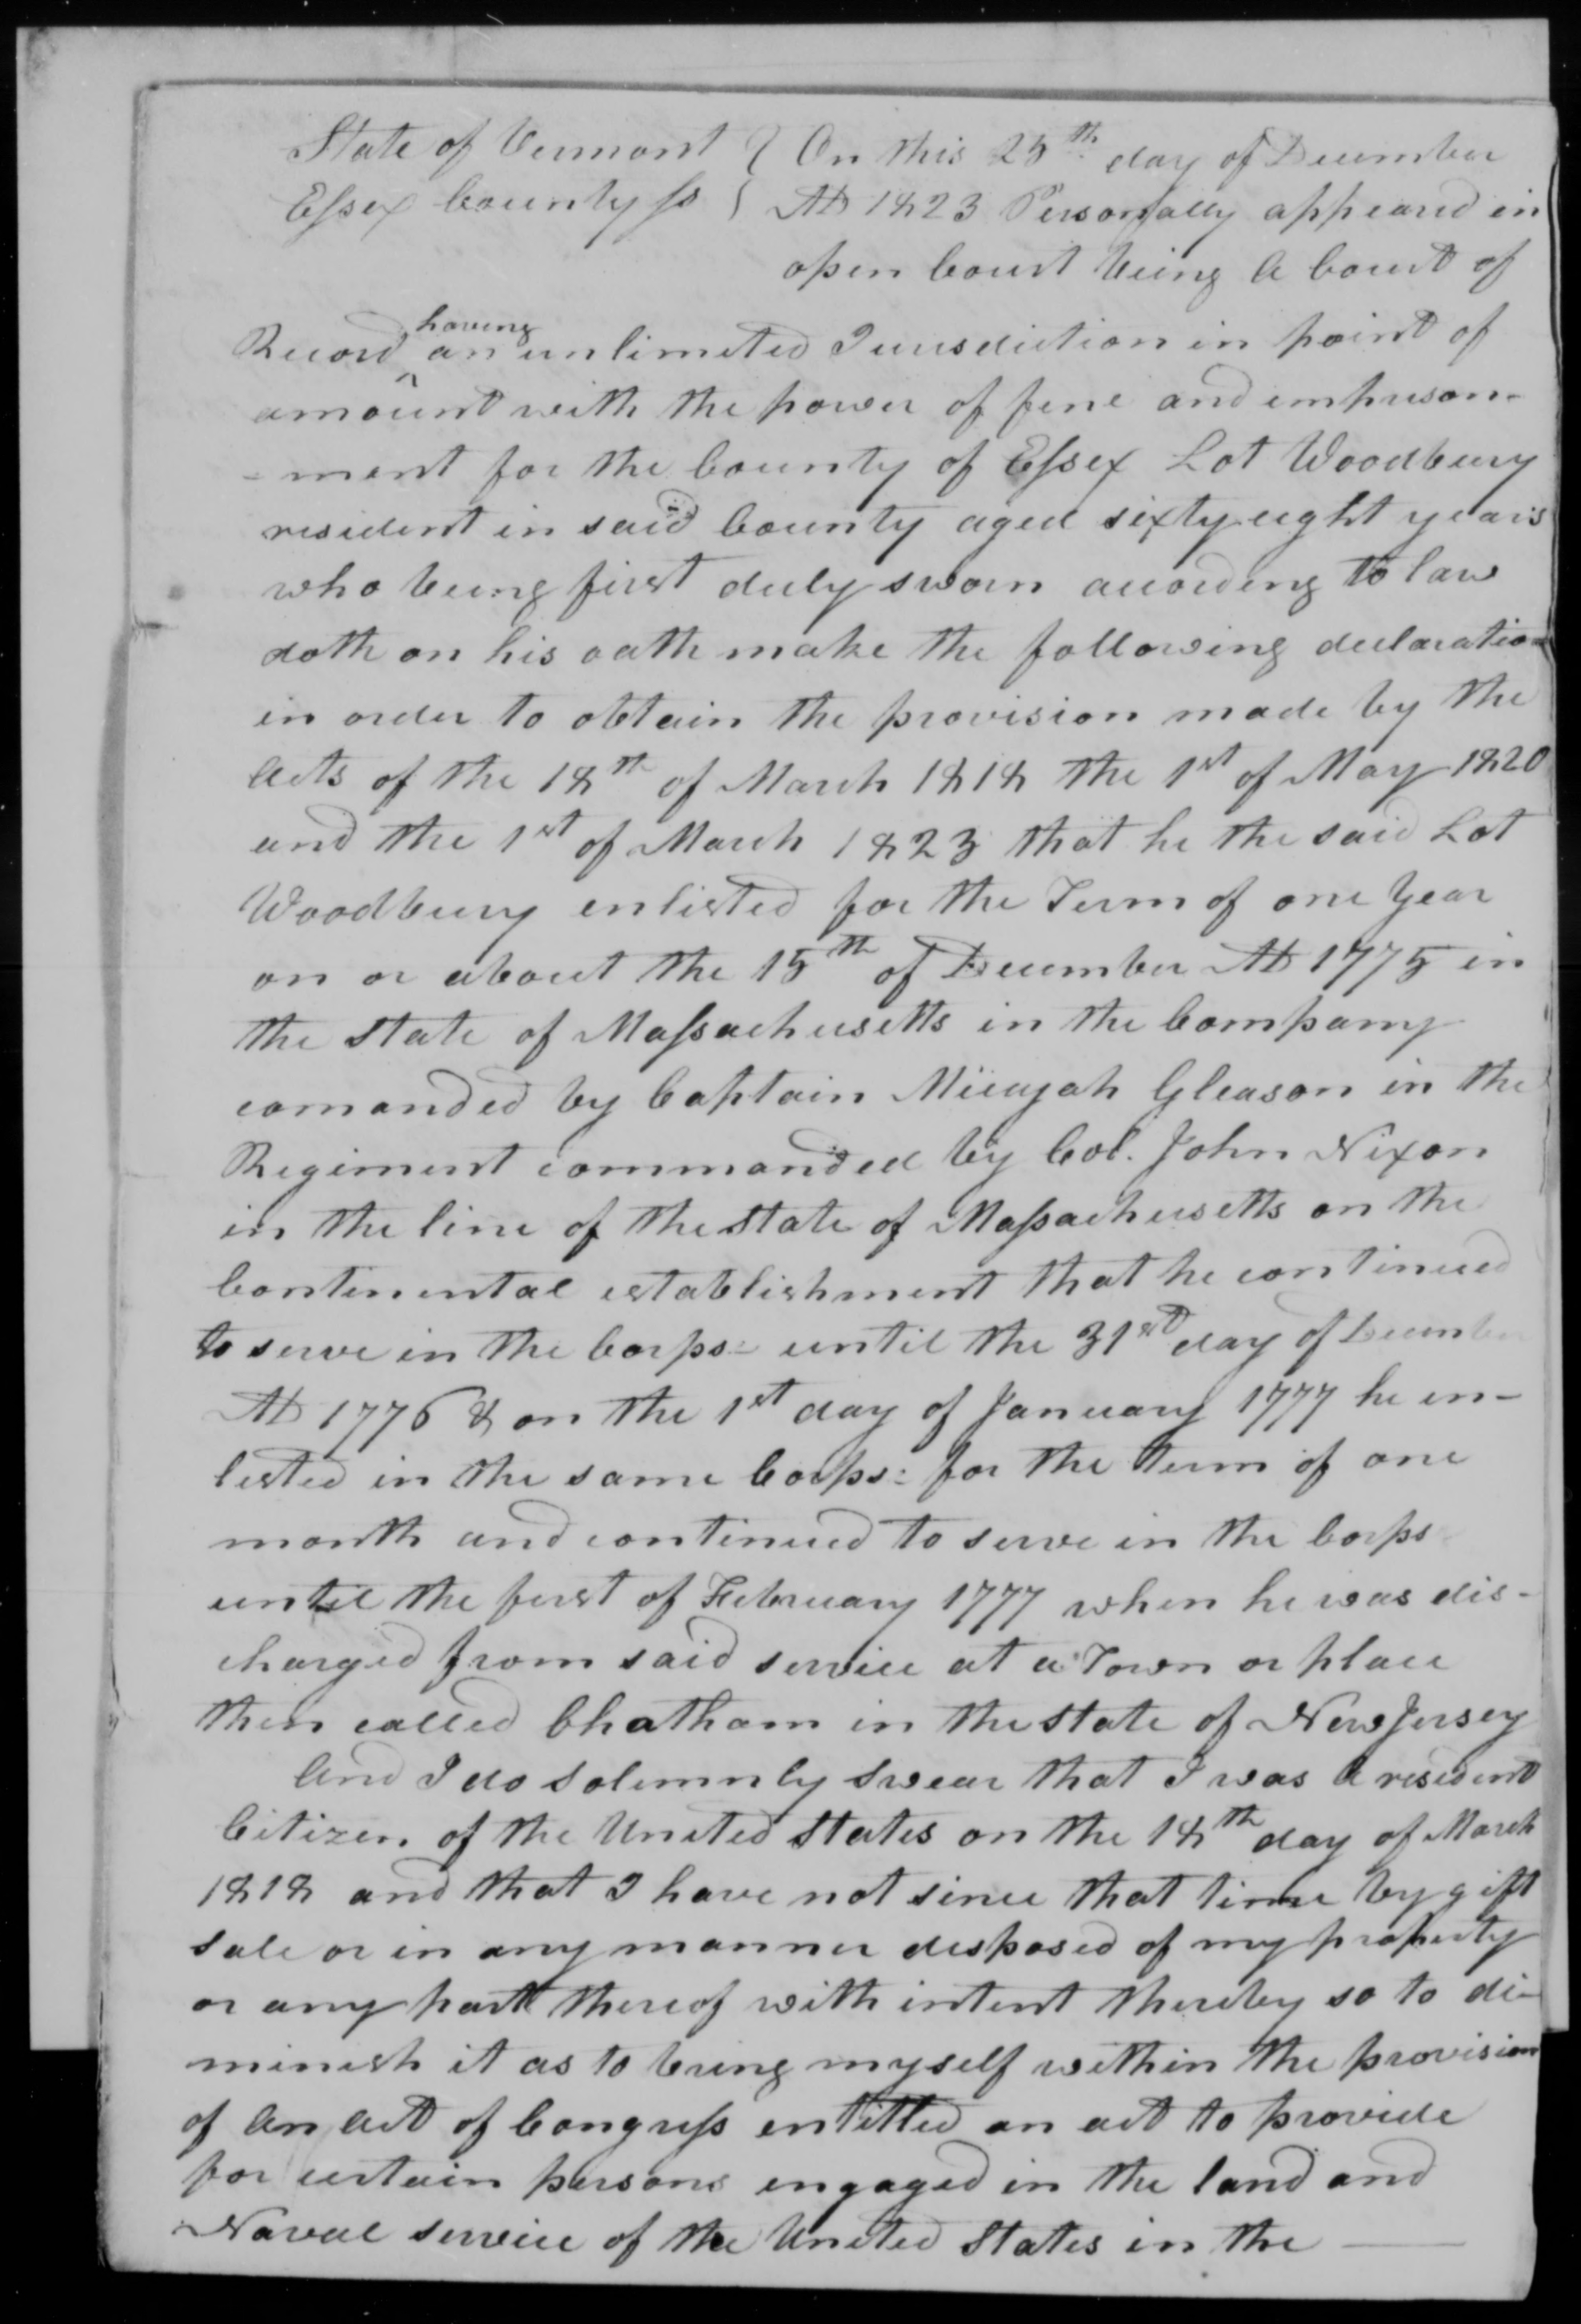 State of Vermont } On this 25th day of December
Essex County ss } AD 1823 Personally appeared in
open Court being a Court of
Record having an unlimited Jurisdiction in point of
amount with the power of fine and imprison-
-ment for the County of Essex Lot Woodbury
resident in said County aged sixty eight years
who being first duly sworn according to law
doth on his oath make the following declaration
in order to obtain the provision made by the
Acts of the 18th of March 1818 the 1st of May 1820
and the 1st of March 1823 that he the said Lot
Woodbury enlisted for the Term of one Year
on or about the 15th of December AD 1775 in
the State of Massachusetts in the Company
comanded by Captain Micajah Gleason in the
Regiment commanded by Col. John Nixon
in the line of the State of Massachusetts on the
Continental establishment that he continued
to serve in the Corps until the 31st day of December
AD 1776 & on the 1st day of January 1777 he en-
listed in the same Corps: for the term of one
month and continued to serve in the Corps
until the first of February 1777 when he was dis-
charged from said service at a Town or place
then called Chatham in the State of New Jersey
And I do solemnly swear that I was a resident
Citizen of the United States on the 18th day of March
1818 and that I have not since that time by gift
sale or in any manner disposed of my property
or any part thereof with intent thereby so to di-
minish it as to bring myself within the provision
of An Act of Congress entitled an act to provide
for certain persons engaged in the land and
Naval service of the United States in the